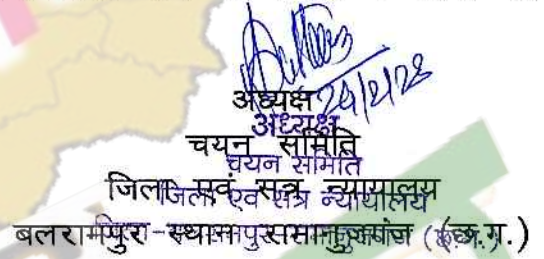 24/2/23
अध्यक्ष
अध्यक्ष
चयन समिति
चयन समिति
जिला एवं सत्र न्यायालय
जिला एवं सत्र न्यायालय
बलरामपुर स्थान रामानुजगंज (छ.ग.)